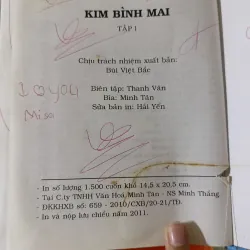 KIM BÌNH MAI
TẬP I
Chịu trách nhiệm xuất bản:
Bùi Việt Bắc
Biên tập: Thanh Vân
Bìa: Minh Tân
Sửa bản in: Hải Yến
I ♡ you
Miso
- In số lượng 1.500 cuốn khổ 14,5 x 20,5 cm.
- Tại C.ty TNHH Văn Hoá Minh Tân - NS Minh Thắng.
- ĐKKHXB số: 659 - 2010/CXB/20-21/TĐ.
- In và nộp lưu chiểu năm 2011.